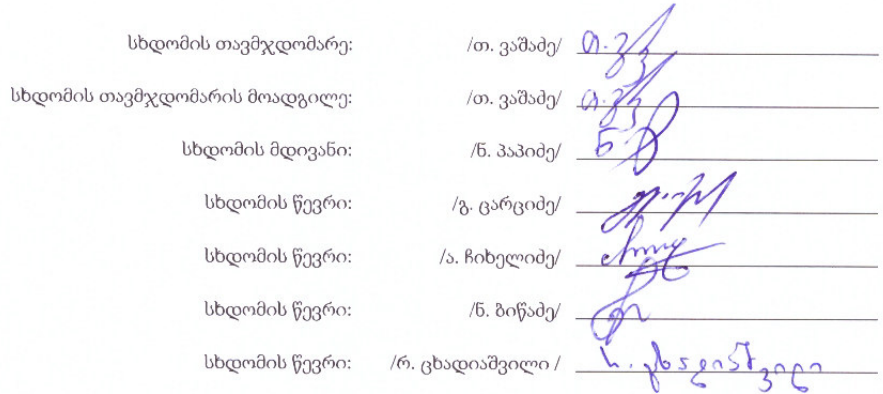 სხდომის თავმჯდომარე: /თ. ვაშაძე/ თ. ვ
სხდომის თავმჯდომარის მოადგილე: /თ. ვაშაძე/ თ. ვ
სხდომის მდივანი: /ნ. პაპიძე/ ნ
სხდომის წევრი: /გ. ცარციძე/
სხდომის წევრი: /ა. ჩიხელიძე/
სხდომის წევრი: /ნ. ბიწაძე/
სხდომის წევრი: /რ. ცხადიაშვილი / რ. ცხადიაშვილი